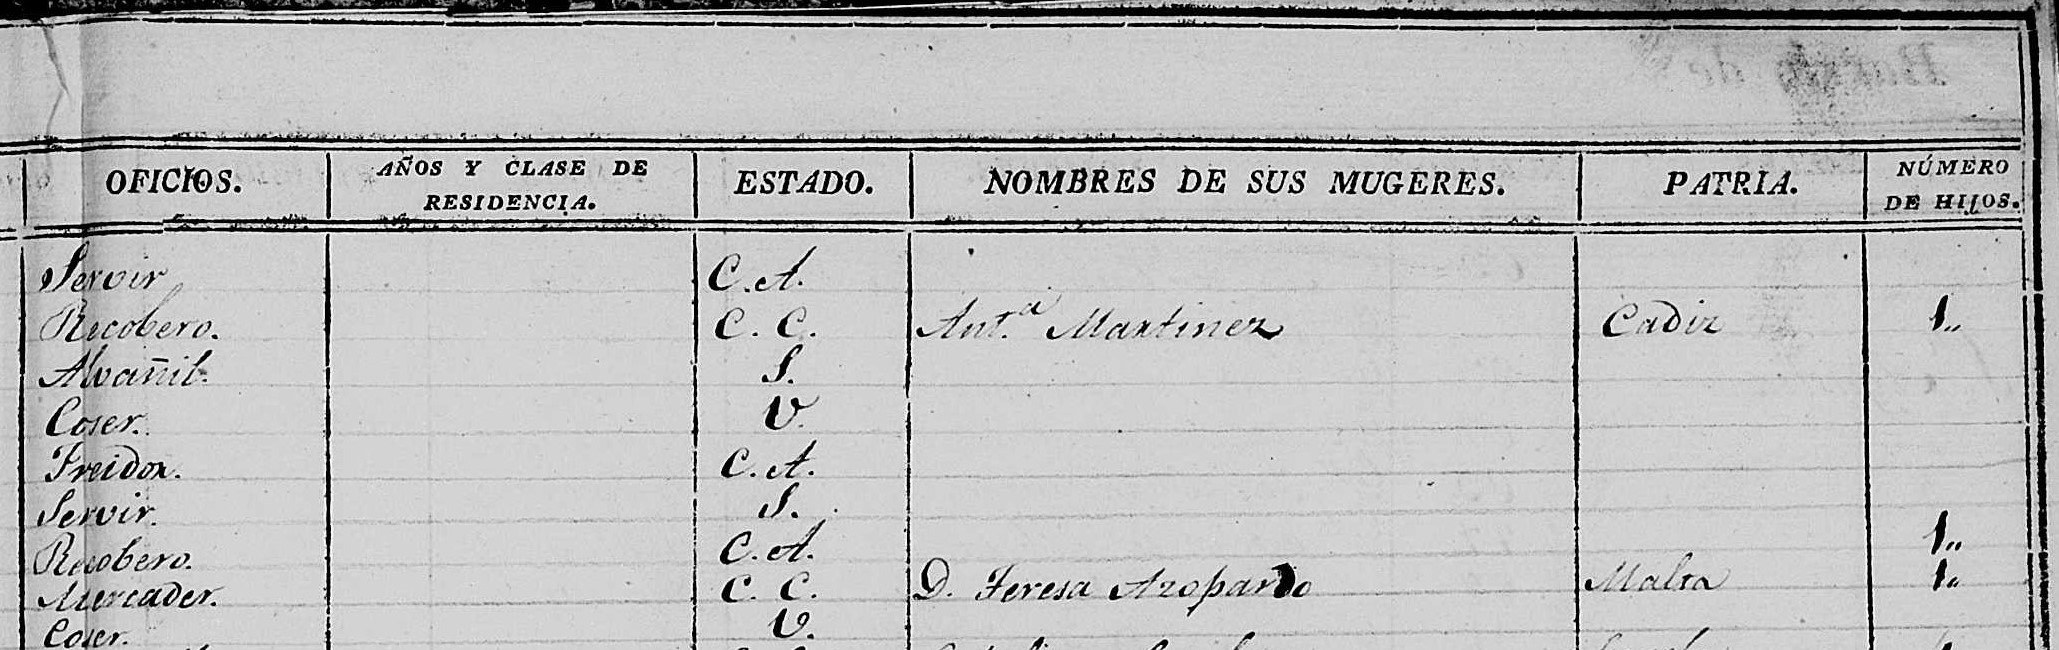 OFICIOS. AÑOS Y CLASE DE RESIDENCIA. ESTADO. NOMBRES DE SUS MUGERES. PATRIA. NÚMERO DE HIJOS.
Servir C. A.
Recobero. C. C. Ant.ª Martinez Cadiz 1„
Alvañil. S.
Coser. V.
Freidor. C. A.
Servir. S.
Recobero. C. A. 1„
Mercader. C. C. D. Teresa Azopardo Malta 1„
Coser. V.